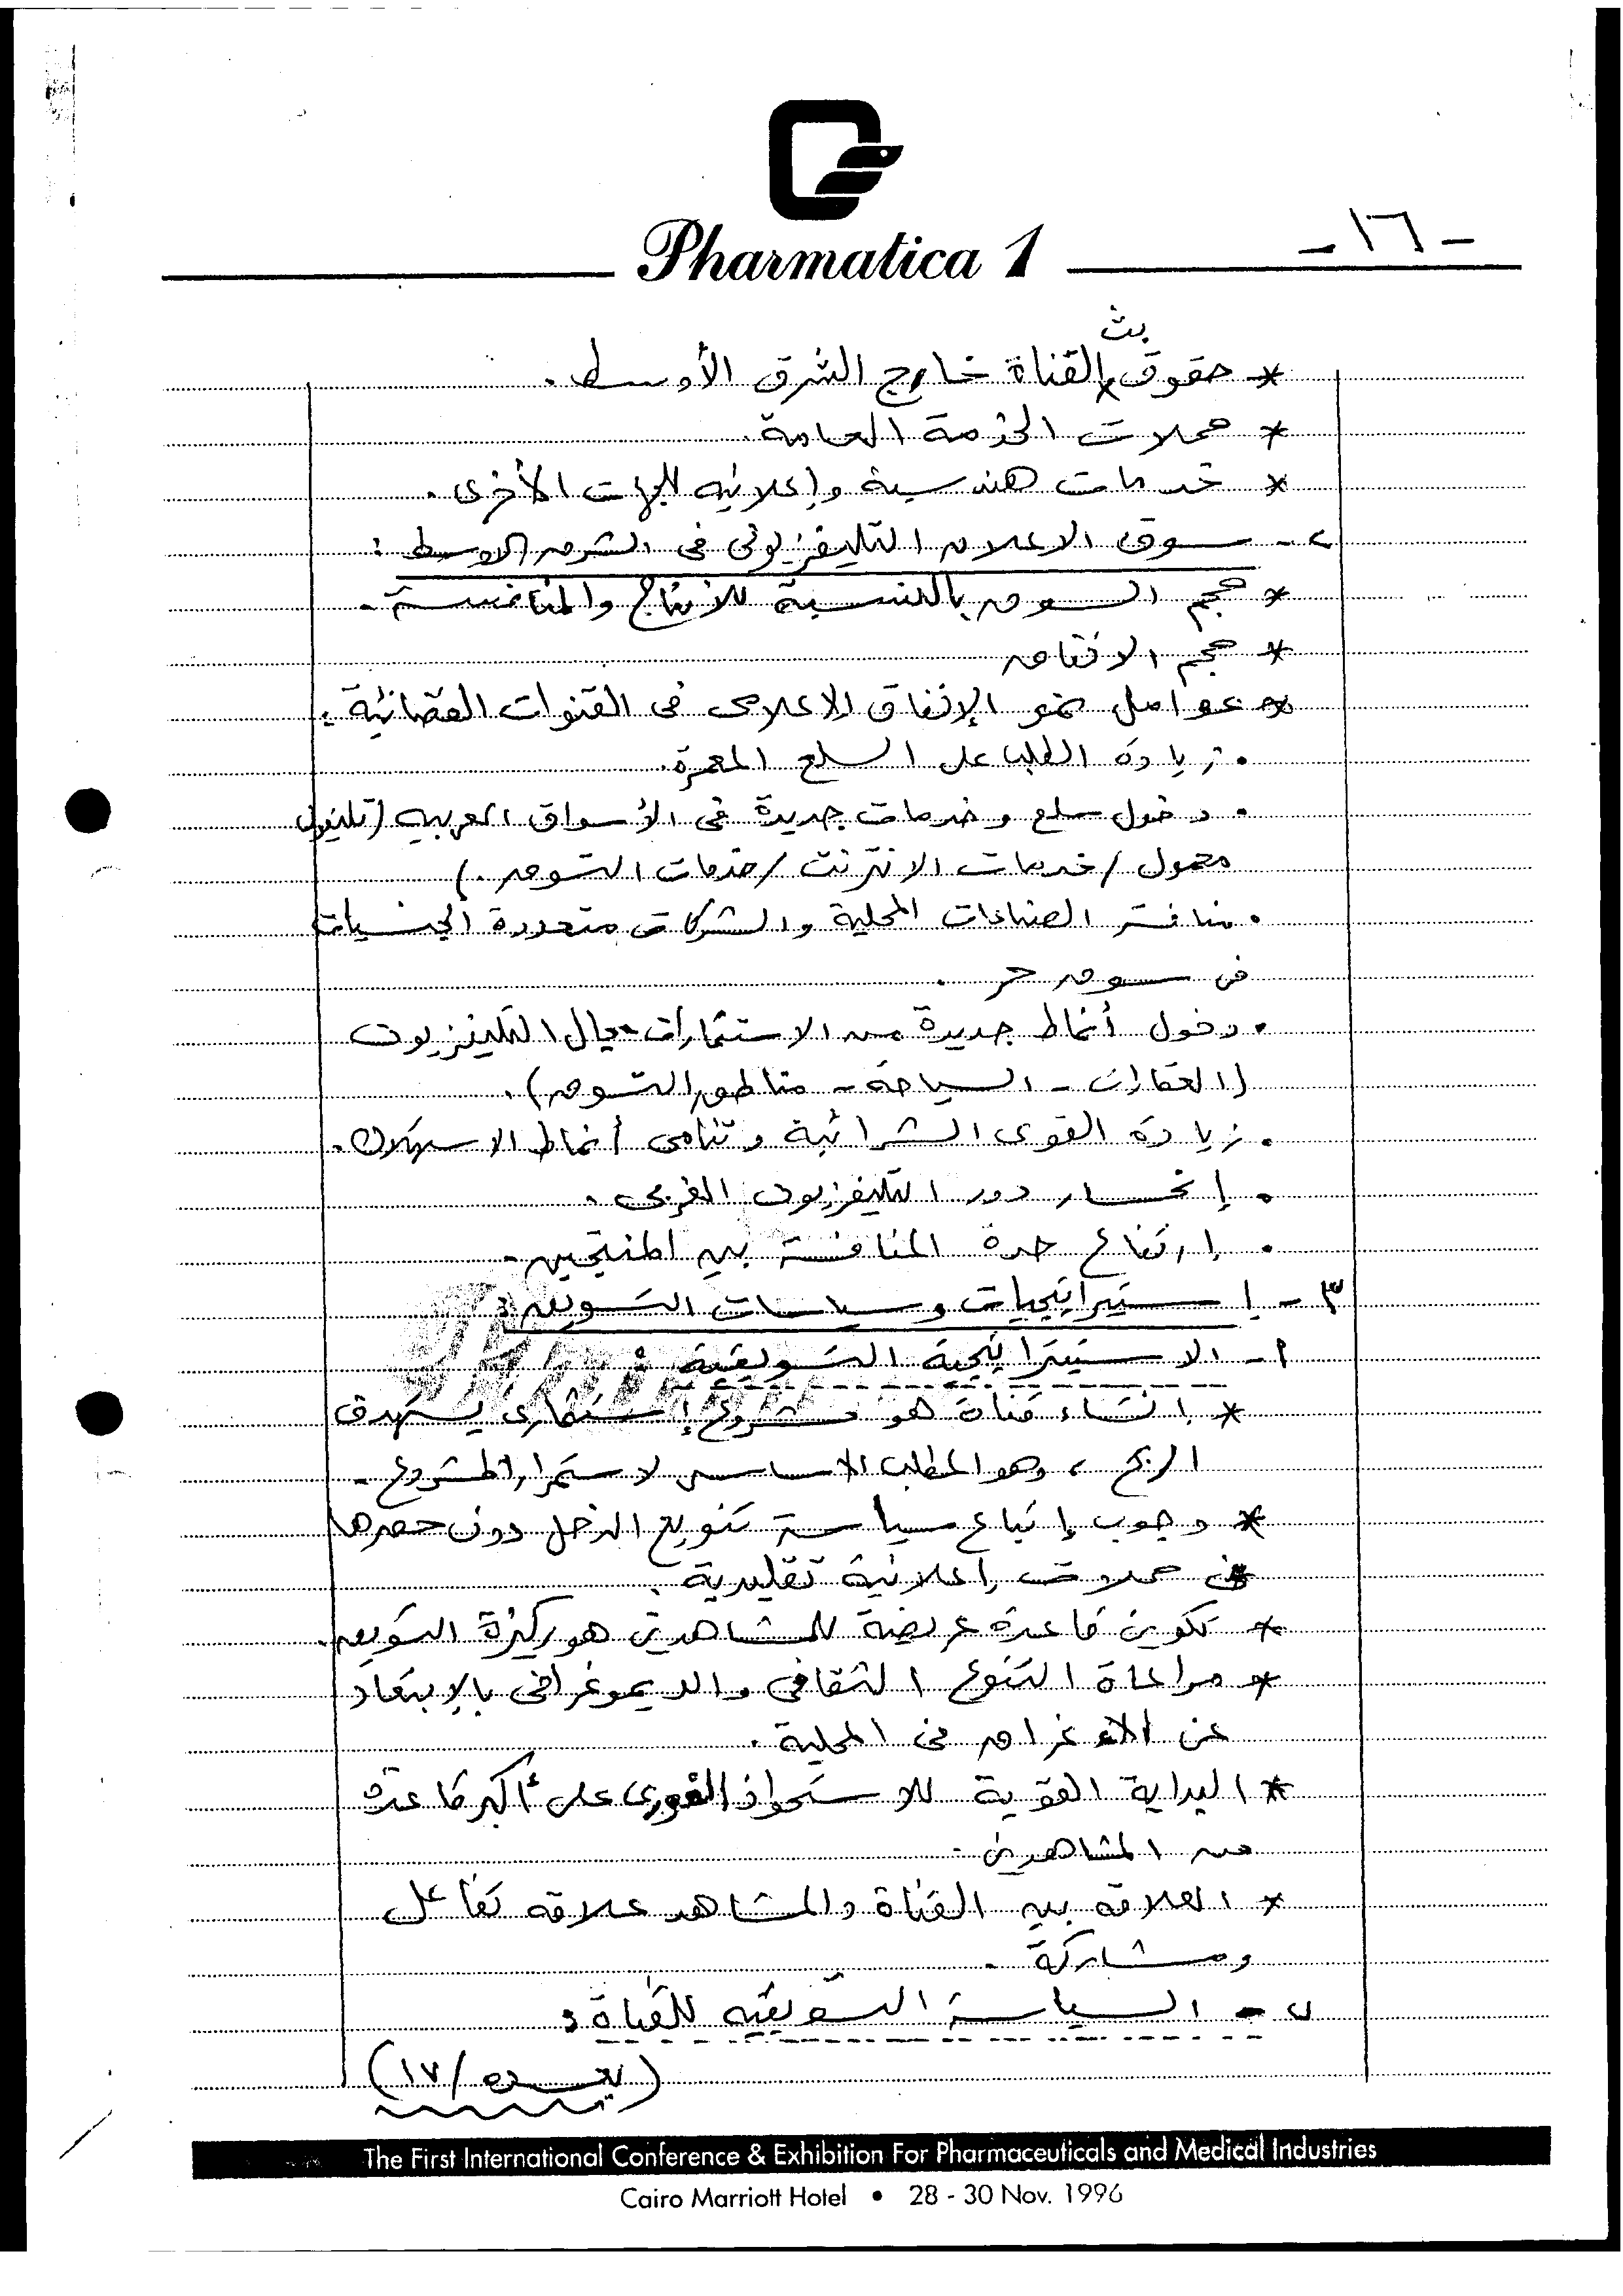 Pharmatica 1
- ١٦ -
* حقوق بث القناة خارج الشرق الأوسط.
* حملات الخدمة العامة.
* خدمات هندسية وإعلانيه للجهات الأخرى.
٢- سوق الاعلان التليفزيونى فى الشرق الاوسط :
* حجم السوق بالنسبة للانتاج والمنافسة.
* حجم الانفاق
* عوامل نمو الإنفاق الإعلامى فى القنوات الفضائية :
• زيادة الطلب على السلع المعمرة.
• دخول سلع وخدمات جديدة فى الأسواق العربيه (تليفون
محمول / خدمات الانترنت / خدمات التسوق.)
• منافسة الصناعات المحلية والشركات متعددة الجنسيات
فى سوق حر.
• دخول أنماط جديدة من الاستثمارات مجال التليفزيون
(العقارات - السياحة - مناطق التسوق).
• زيادة القوى الشرائية وتنامى أنماط الاستهلاك.
• إنحسار دور التليفزيون الغربى.
• إرتفاع حدة المنافسة بين المنتجين.
٣- إستيراتيجيات وسياسات التسويق :
أ- الاستيتراتيجية التسويقية :
* انشاء قناة هو مشروع إستثمارى يستهدف
الربح ، وهو المطلب الاساسى لاستمرار المشروع.
* وجوب إتباع سياسة تنويع الدخل دون حصرها
فى حملات إعلانية تقليدية.
* تكوين قاعدة عريضة للمشاهدين هو ركيزة التسويق.
* مراعاة التنوع الثقافى والديموغرافى بالإبتعاد
عن الاغراق فى المحلية.
* البداية القوية للاستحواذ الفورى على أكبر قاعدة
من المشاهدين.
* العلاقه بين القناة والمشاهد علاقه تفاعل
ومشاركة.
ب- السياسة التسويقيه للقناة :
(يتبع /١٧)
The First International Conference & Exhibition For Pharmaceuticals and Medical Industries
Cairo Marriott Hotel • 28 - 30 Nov. 1996